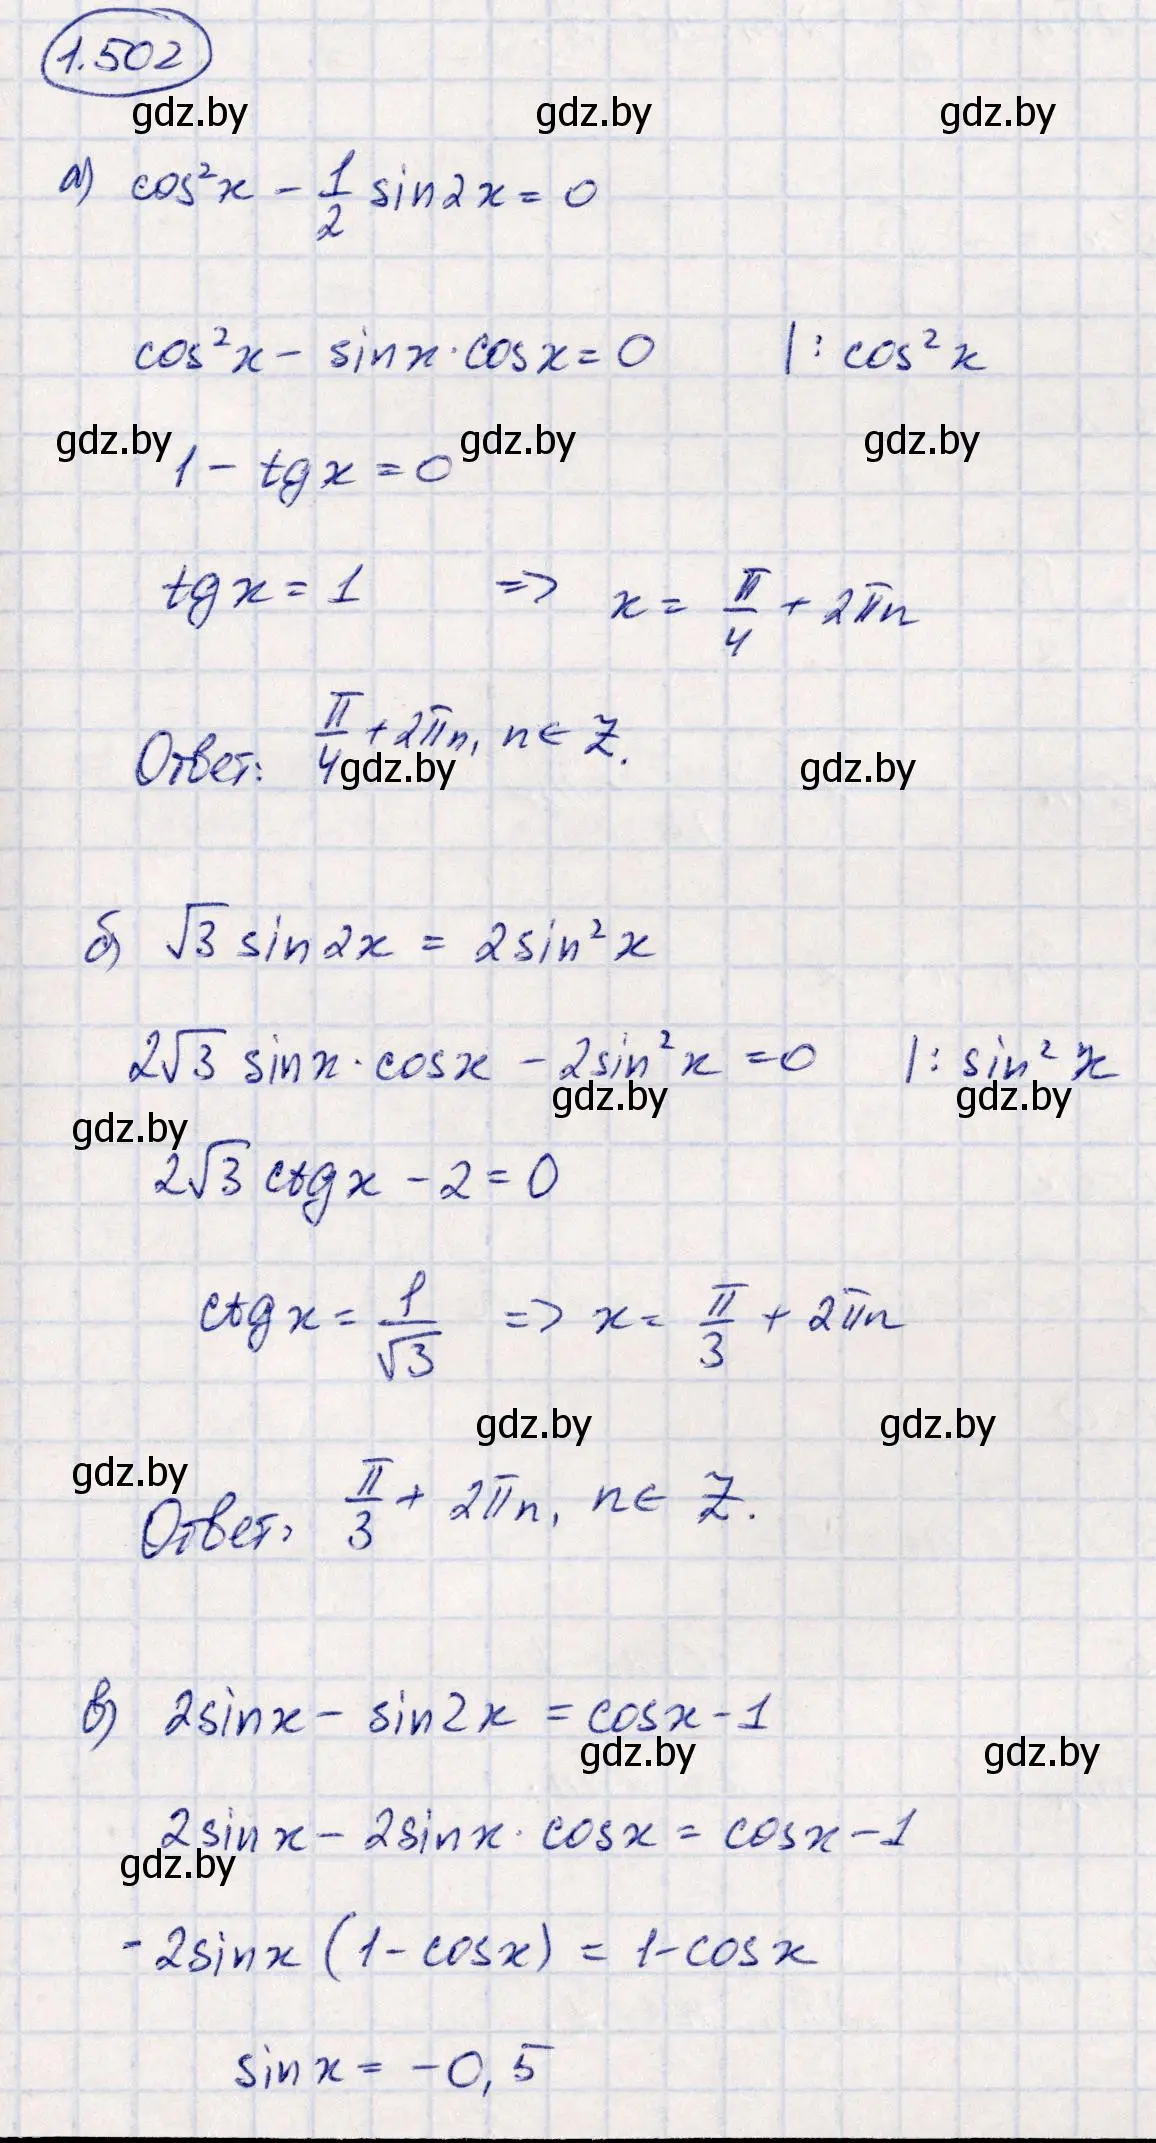 1.502
gdz.by gdz.by gdz.by
а) cos²x - 1/2 sin2x = 0
cos²x - sinx·cosx = 0 |: cos²x
gdz.by gdz.by gdz.by
1 - tgx = 0
tgx = 1 => x = π/4 + 2πn
Ответ: π/4 + 2πn, n∈Z.
gdz.by gdz.by
б) √3 sin2x = 2sin²x
2√3 sinx·cosx - 2sin²x = 0 |: sin²x
gdz.by gdz.by
gdz.by
2√3 ctgx - 2 = 0
ctgx = 1/√3 => x = π/3 + 2πn
gdz.by gdz.by
gdz.by
Ответ: π/3 + 2πn, n∈Z.
в) 2sinx - sin2x = cosx - 1
gdz.by gdz.by
2sinx - 2sinx·cosx = cosx - 1
gdz.by
-2sinx (1 - cosx) = 1 - cosx
sinx = -0,5